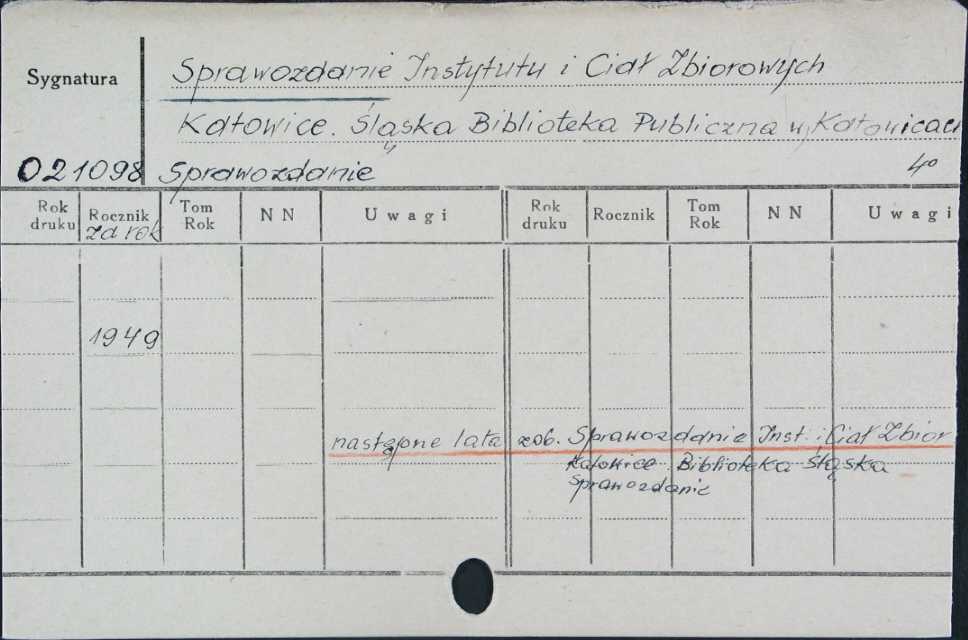 Sygnatura
Sprawozdanie Instytutu i Ciał Zbiorowych
Katowice. Śląska Biblioteka Publiczna w Katowicach
021098 Sprawozdanie 4o
Rok druku Rocznik za rok Tom Rok NN Uwagi Rok druku Rocznik Tom Rok NN Uwagi
1949
następne lata zob. Sprawozdanie Inst. i Ciał Zbior
Katowice. Biblioteka Śląska
Sprawozdanie